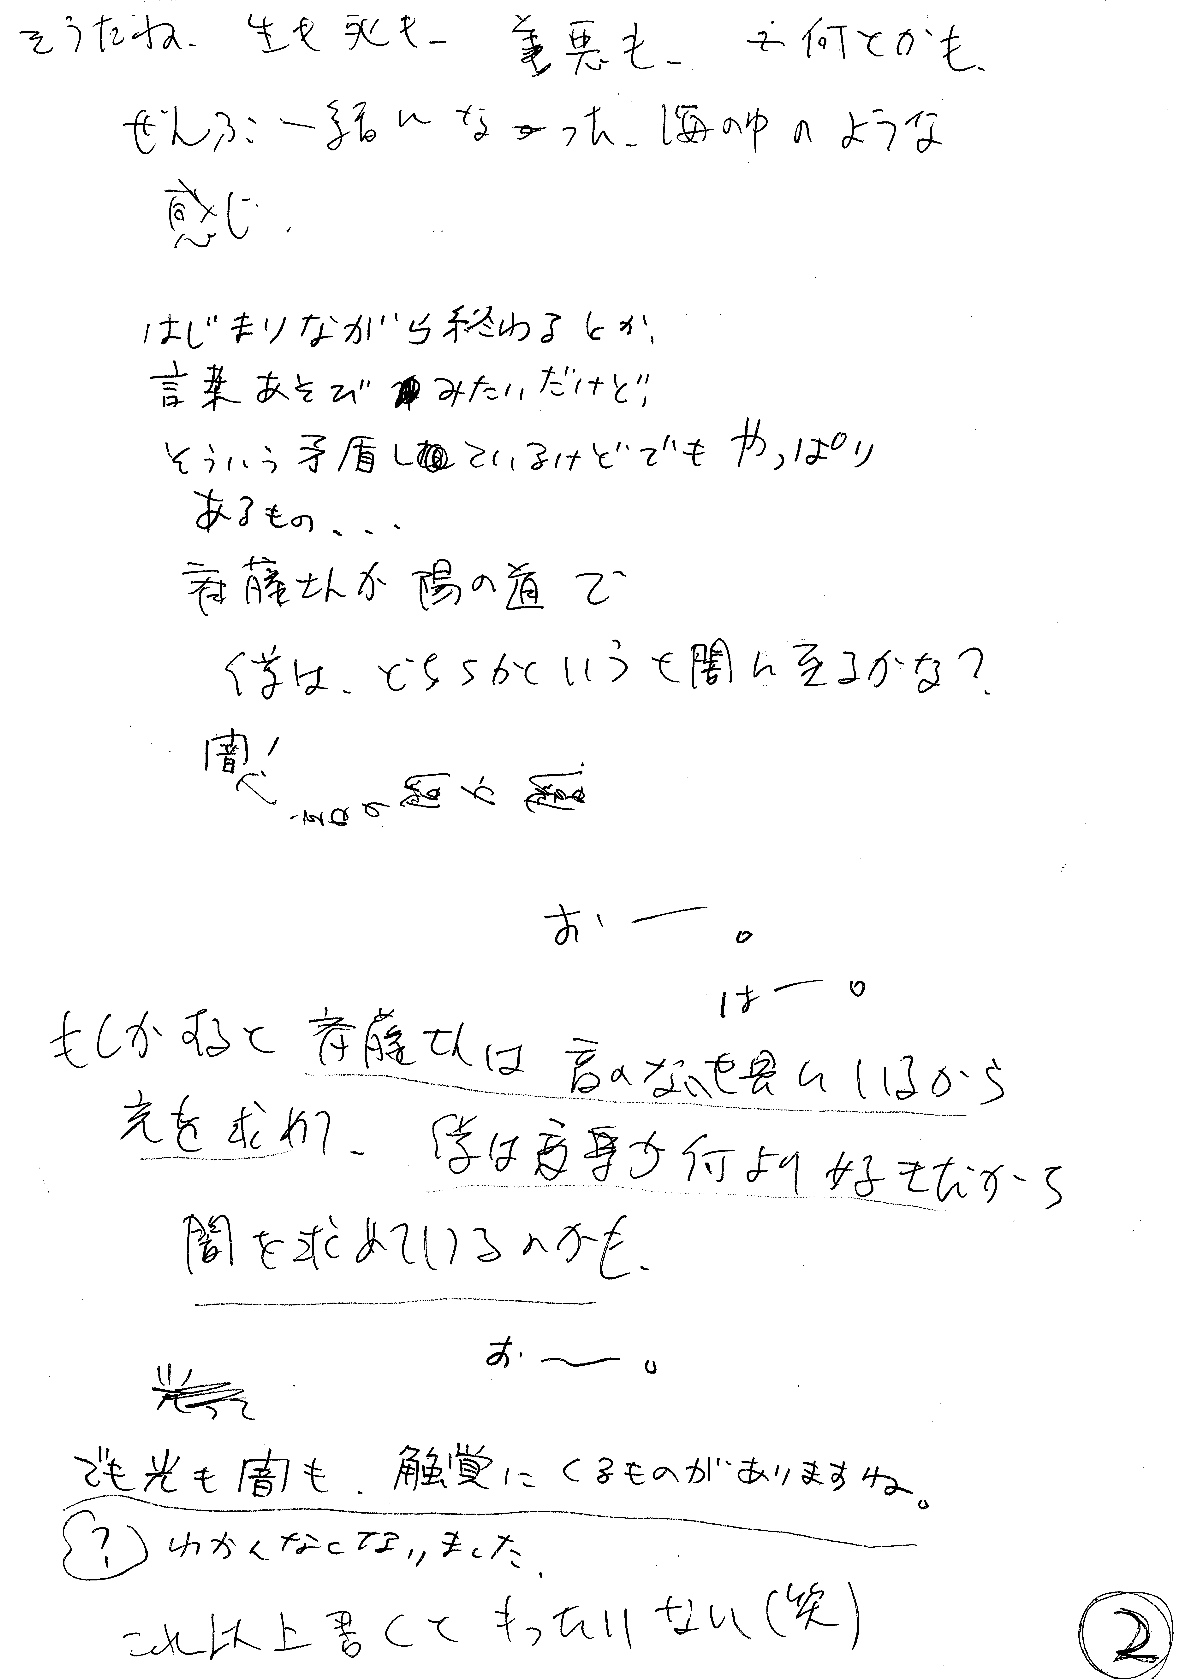 そうだね、生も死も、善悪も、何とかも、
ぜんぶ一緒になった、海の中のような
感じ.
はじまりながら終わるとか、
言葉あそびみたいだけど、
そういう矛盾しているけどでもやっぱり
あるもの、、、
斉藤さんが陽の道で
僕は、どちらかというと闇に至るかな?
闇!
おー。
はー。
もしかすると斉藤さんは音のない世界にいるから
光を求めて、僕は音楽が何より好きだから
闇を求めているのかも、
おー。
でも光も闇も、触覚にくるものがありますね。
? わかんなくなりました.
これ以上書くともったいない(笑)
2